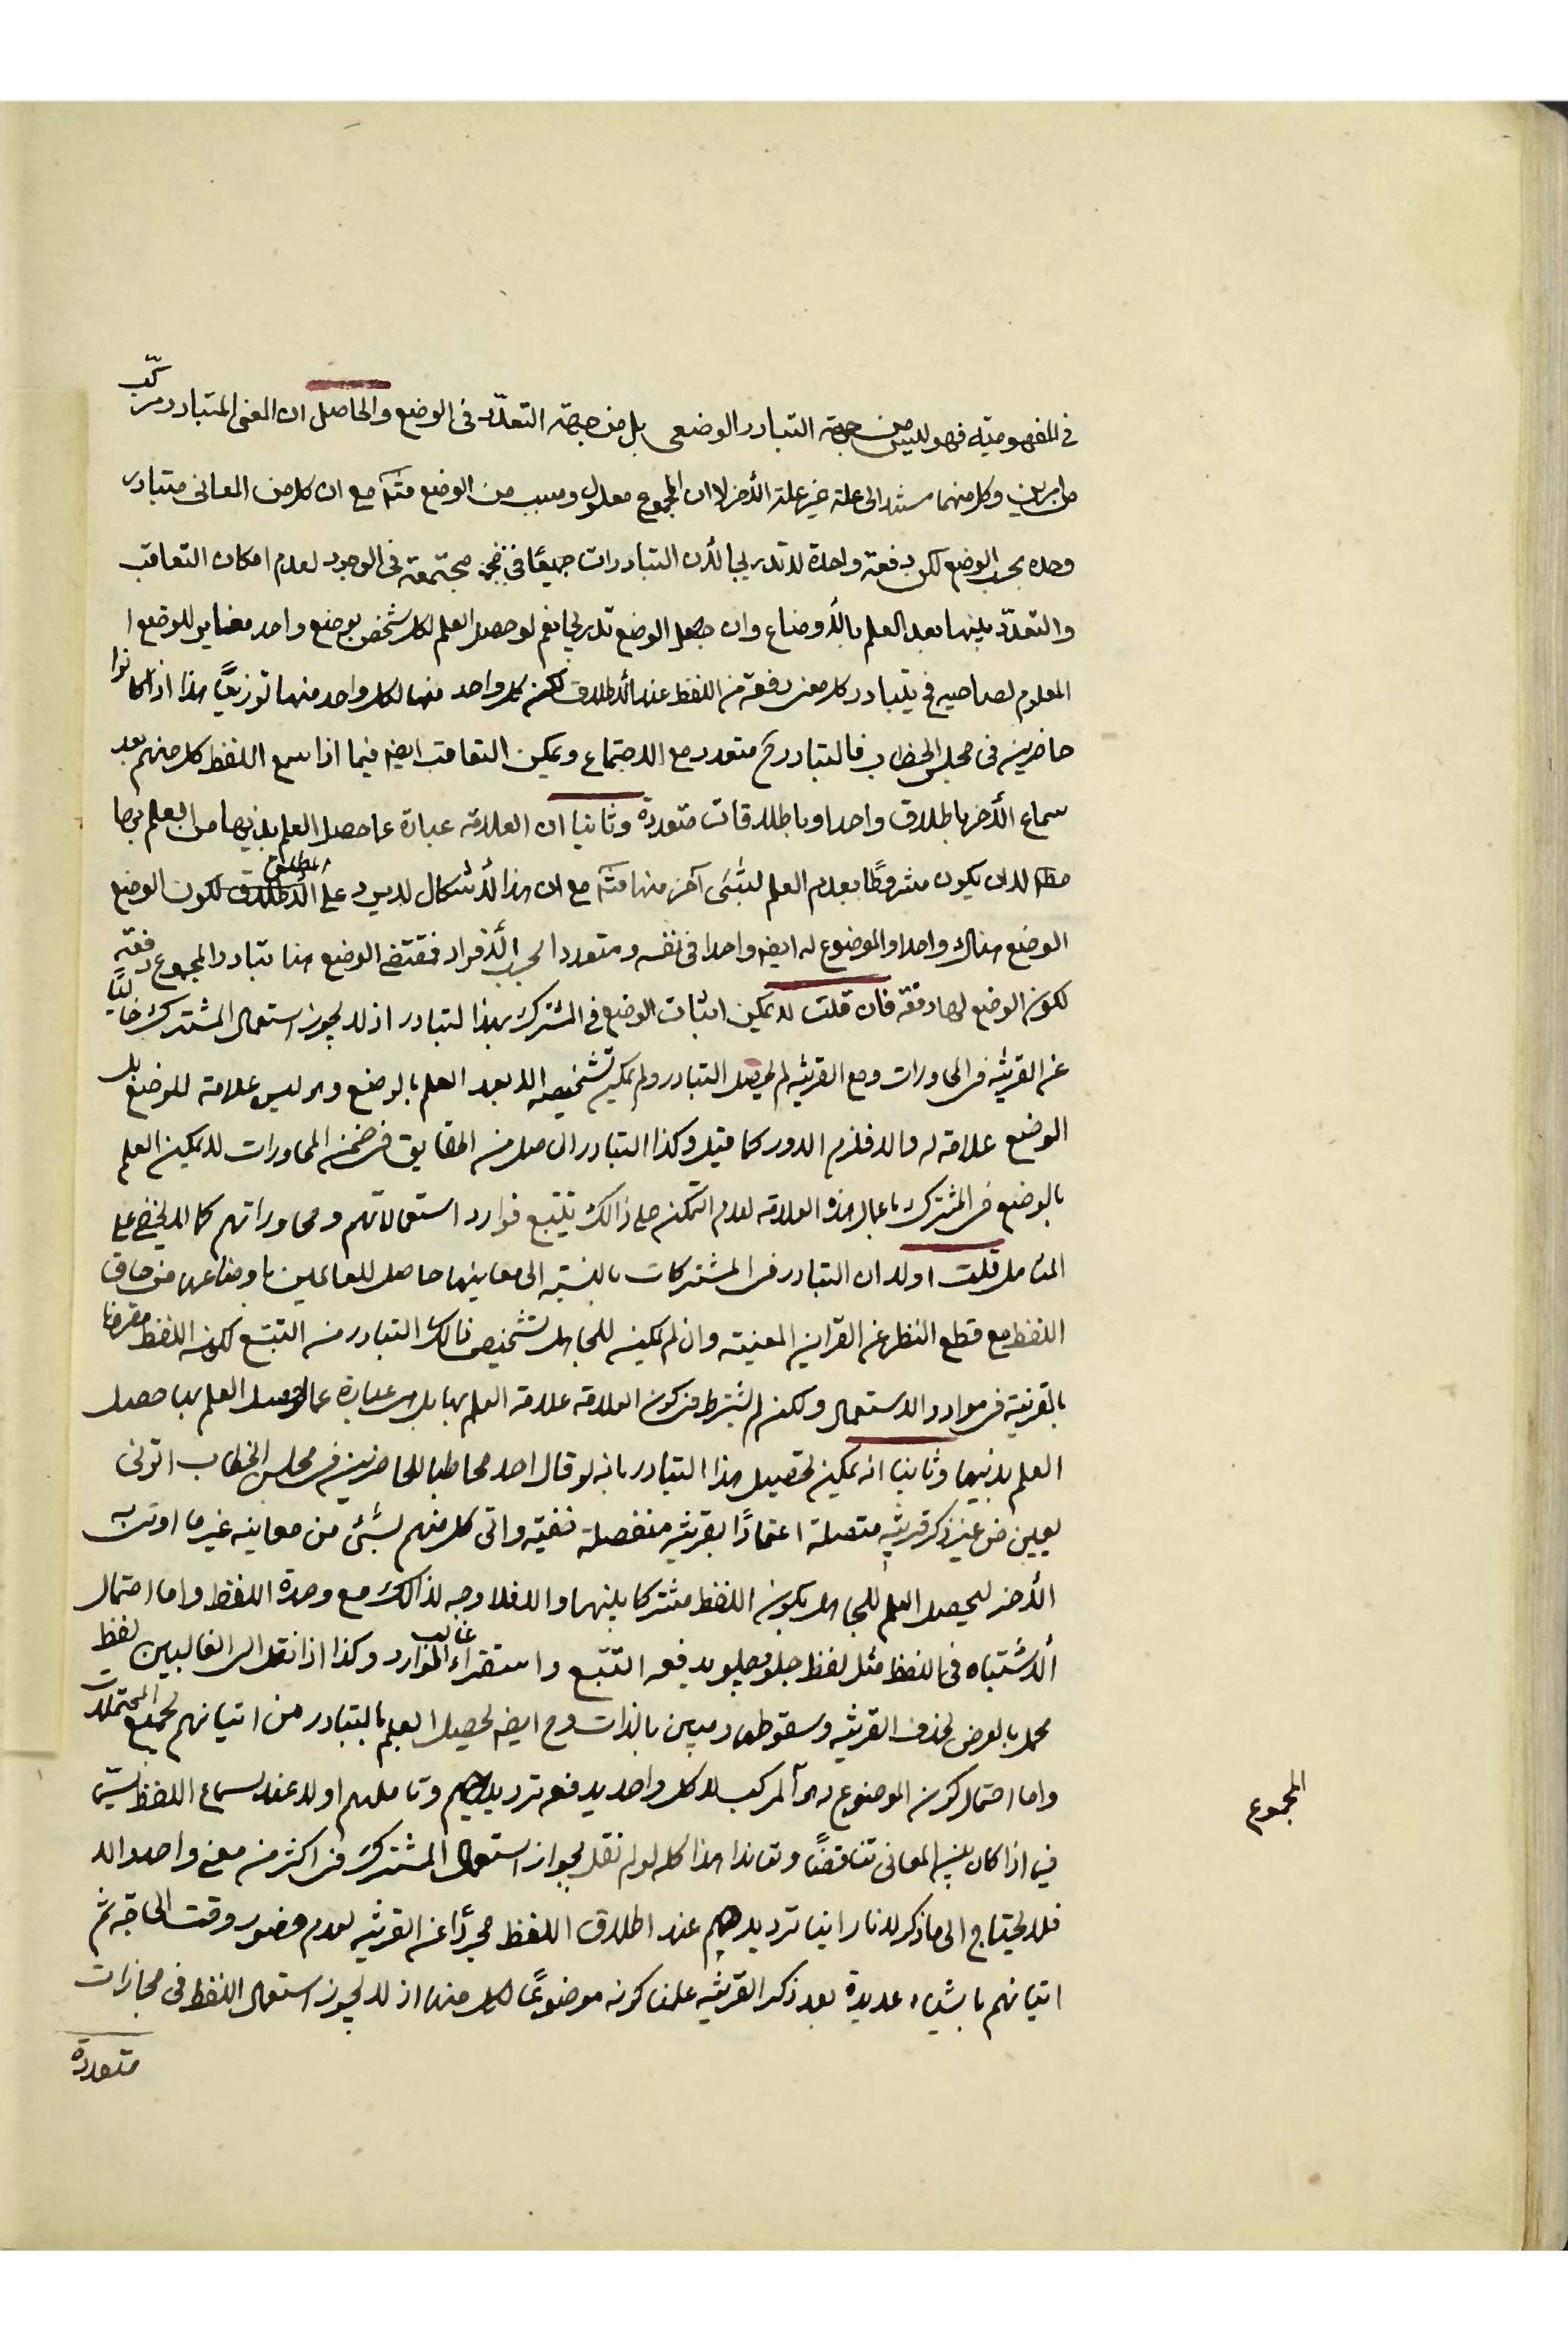 في المفهومية فهو ليس من جهة التبادر الوضعي بل من جهة التعدّد في الوضع والحاصل ان المعنى المتبادر مركّب
وكل منهما مستند الى علة غير علة الأخر لا ان المجموع معلول ومسبب من الوضع مع ان كل من المعاني متبادر
وحده بحسب الوضع لكن دفعة واحدة لا تدريجا لأن التبادرات جميعًا مجتمعة في الوجود لعدم امكان التعاقب
والتعدّد بينها بعد العلم بالأوضاع وان جعل الوضع تدريجا نعم لو حصل العلم لكل شخص بوضع واحد مغاير للوضع ا
المعلوم لصاحبه فح يتبادر كل معنى دفعة من اللفظ عند الأطلاق لكن كل واحد منها لكل واحد منهما توزيعًا هذا اذا كانوا
حاضرين في مجلس الخطاب فالتبادر ح متعدد مع الاجتماع ويمكن التعاقب ايضه فيما اذا سمع اللفظ كل منهم بعد
سماع الأخر باطلاق واحد او باطلاقات متعددة وثانيا ان العلامة عبارة عما حصل العلم بذيها من العلم بها
مطم لا ان يكون مشروطًا بعدم العلم لشئ آخر منها مع ان هذا الأشكال لا يرد على الأطلاق لكون الوضع
الوضع هناك واحدا والموضوع له ايضه واحدا في نفسه ومتعددا بحسب الأفراد فمقتضى الوضع هنا تبادر المجموع دفعة
لكون الوضع لها دفعة فان قلت لا يمكن اثبات الوضع في المشترك بهذا لتبادر اذ لا يجوز استعمال المشترك خاليًا
عن القرينه في المحاورات ومع القرينه لم يحصل التبادر ولم يمكن تشخيصه الا بعد العلم بالوضع وهو ليس علامة للوضع بل
الوضع علامة له والا فلزم الدور كما قيل وكذا التبادر الحاصل من في ضمن المحاورات لا يمكن العلم
بالوضع في المشترك باعمال هذه العلامة لعدم التمكن على ذالك بتتبع موارد استعمالاتهم ومحاوراتهم كما لا يخفى على
المتامل قلت اولا ان التبادر في المشتركات بالنسبة الى معانيها حاصل للعالمين باوضاعها من حاق
اللفظ مع قطع النظر عن القراين المعينه وان لم يمكن للجاهل تشخيص ذالك التبادر من التتبّع لكون اللفظ مقرونا
بالقرينة في موارد الاستعمال ولكن لم يشترط في كون العلامة علامة العلم بها بل هى عبارة عما لو حصل العلم بها حصل
العلم بذيها وثانيا انه يمكن تحصيل هذا التبادر بانه لو قال احد مخاطبا للحاضرين في مجلس الخطاب اتونى
بعين من غير ذكر قرينه متصلة اعتمادًا بقرينه منفصلة واتى كل منهم لشئ من معانيه غير ما اوتى به
الأخر ليحصل العلم للجاهل بكون اللفظ مشتركا بينهما والا فلا وجه لذالك مع وحدة اللفظ واما احتمال
الأشتباه في اللفظ مثل لفظ يدفعه التتبّع واستقراء غالب الموارد وكذا اذا نقل الى الغالبين لفظ
مجمل بالعرض لحذف القرينه وسقوطها ومبين بالذات وح ايضه يحصل العلم بالتبادر من اتيانهم بجميع المحتملات
واما احتمال كون الموضوع له المركب لا كل واحد يدفعه ترديدهم وتاملهم اولا عند سماع اللفظ سيّما
فيما اذا كان بين المعانى تناقضًا وتعاندا هذا كله لو لم نقل بجواز استعمال المشترك في اكثر من معنى واحد والا
فلا يحتاج الى ما ذكر لانا راينا ترديدهم عند اطلاق اللفظ مجردًا عن القرينه لعدم حضور وقت الحاجة ثم
اتيانهم باشياء عديدة بعد ذكر القرينه علمنا كونه موضوعًا لكل منها اذ لا يجوز استعمال اللفظ في مجازات
متعددة
المجموع